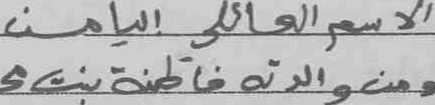 الاسم العائلي اليامنـ
ومن والدته فاطمة بنت